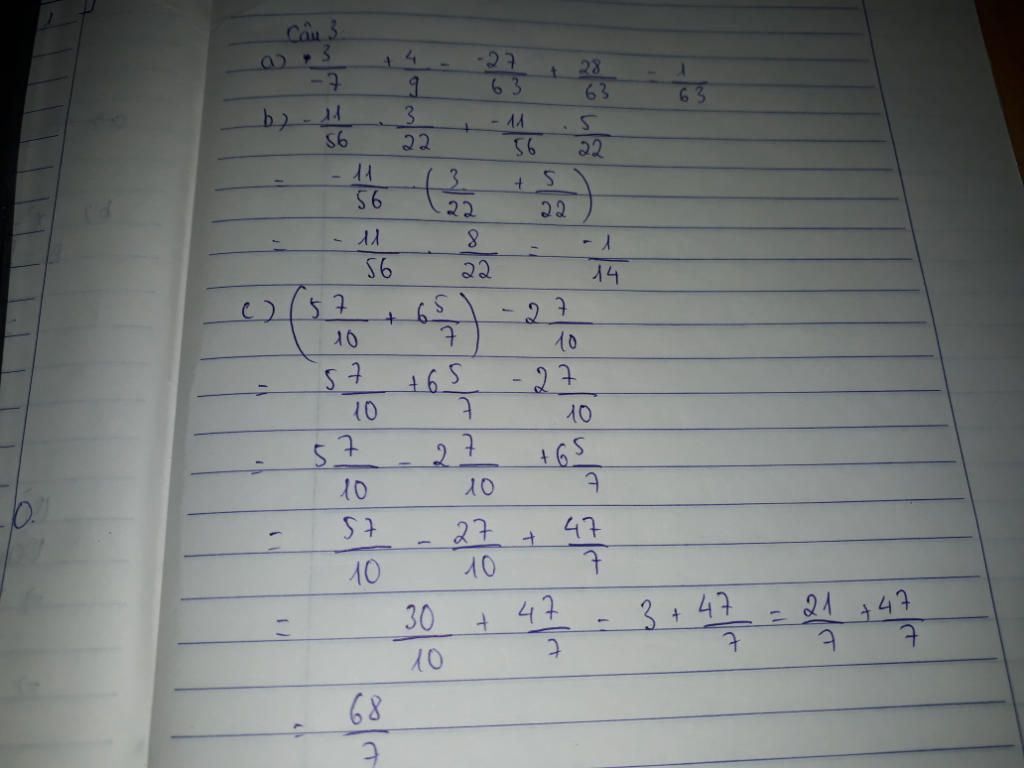 Câu 3.
a) 3/-7 + 4/9 = -27/63 + 28/63 = 1/63
b) -11/56 . 3/22 + -11/56 . 5/22
= -11/56 . (3/22 + 5/22)
= -11/56 . 8/22 = -1/14
c) (5 7/10 + 6 5/7) - 2 7/10
= 5 7/10 + 6 5/7 - 2 7/10
= 5 7/10 - 2 7/10 + 6 5/7
= 57/10 - 27/10 + 47/7
= 30/10 + 47/7 = 3 + 47/7 = 21/7 + 47/7
= 68/7